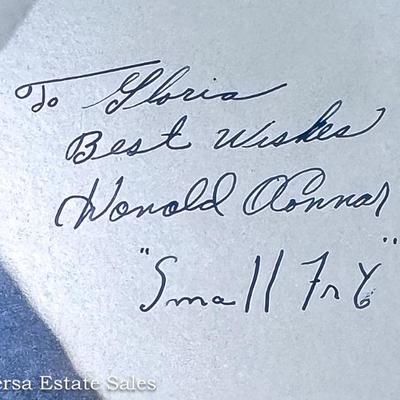 To Gloria
Best Wishes
Donald OConnor
"Small Fry"
ersa Estate Sales